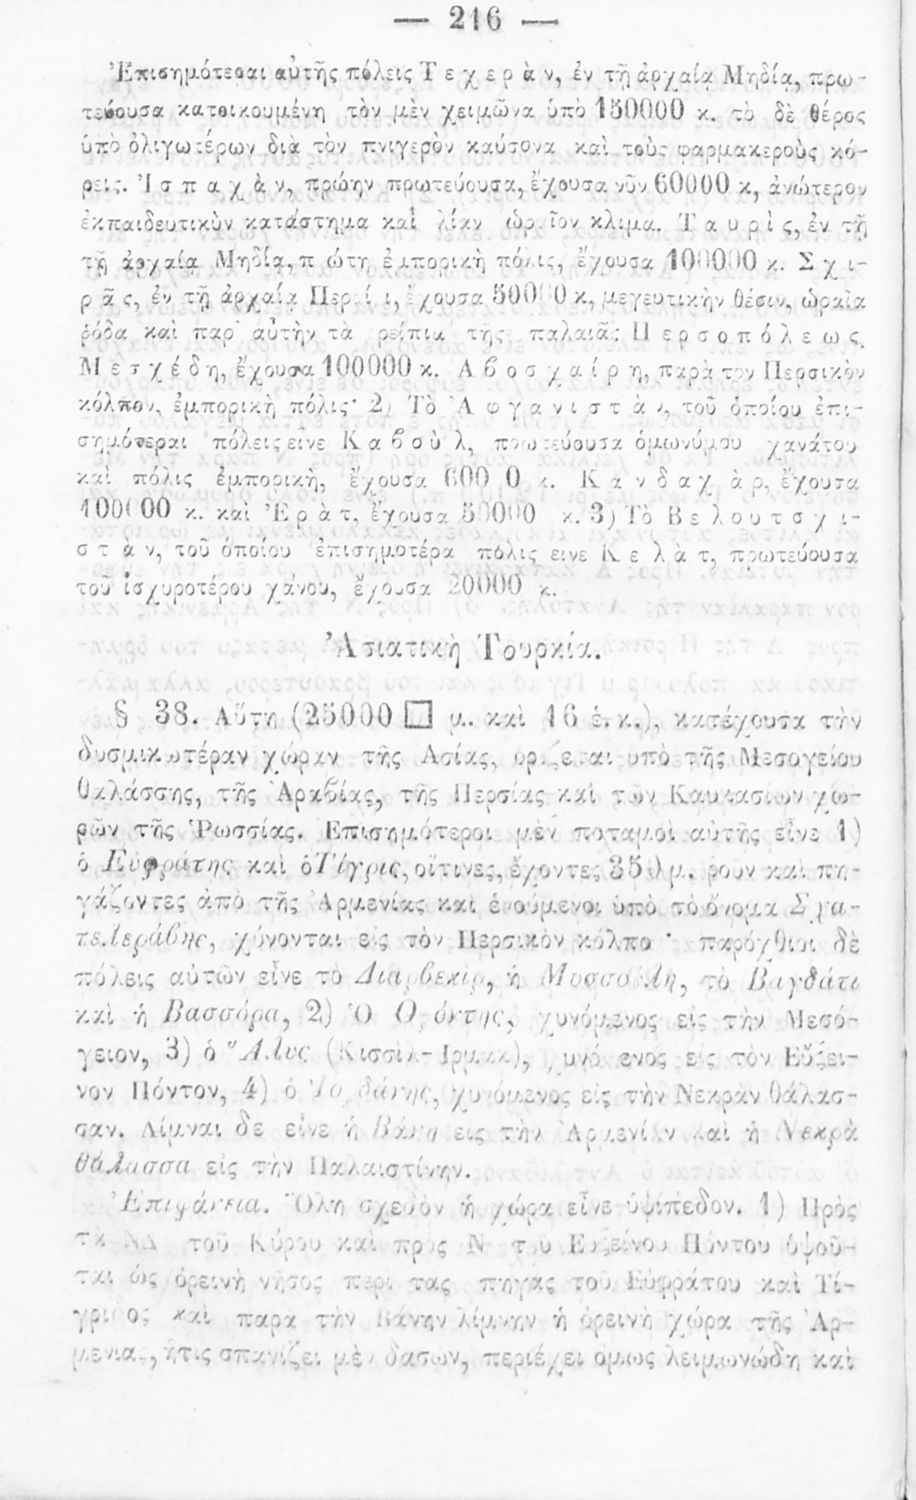 — 216 —
Ἐπισημότεραι αὐτῆς πόλεις Τεχερὰν, ἐν τῇ ἀρχαίᾳ Μηδίᾳ, πρω-
τεύουσα κατοικουμένη τὸν μὲν χειμῶνα ὑπὸ 150000 κ. τὸ δὲ θέρος
ὑπὸ ὀλιγωτέρων διὰ τὸν πνιγερὸν καύσονα καὶ τοὺς φαρμακεροὺς κό-
ρεις. Ἰσπαχὰν, πρώην πρωτεύουσα, ἔχουσα νῦν 60000 κ, ἀνώτερον
ἐκπαιδευτικὸν κατάστημα καὶ λίαν ὡραῖον κλιμα. Ταυρὶς, ἐν τῇ
τῇ ἀρχαίᾳ Μηδίᾳ, πρώτη ἐμπορικὴ πόλις, ἔχουσα 100000 κ. Σχι-
ρᾶς, ἐν τῇ ἀρχαίᾳ Περσίᾳ, ἔχουσα 50000 κ, μεγευτικὴν θέσιν, ὡραῖα
ῥόδα καὶ παρ' αὐτὴν τὰ ρείπια τῆς παλαιᾶς Περσοπόλεως.
Μεσχέδη, ἔχουσα 100000 κ. Αβοσχαίρη, παρὰ τὸν Περσικὸν
κόλπον, ἐμπορικὴ πόλις· 2) Τὸ Ἀφγανιστὰν, τοῦ ὁποίου ἐπι-
σημότεραι πόλεις εινε Καβσὺλ, πρωτεύουσα ὁμωνύμου χανάτου
καὶ πόλις ἐμπορικὴ, ἔχουσα 60000 κ. Κανδαχὰρ, ἔχουσα
100000 κ. καὶ Ἐρὰτ, ἔχουσα 50000 κ. 3) Τὸ Βελουτσχι-
στὰν, τοῦ ὁποίου ἐπισημοτέρα πόλις εινε Κελὰτ, πρωτεύουσα
τοῦ ἰσχυροτέρου χάνου, ἔχουσα 20000 κ.
Ἀσιατικὴ Τουρκία.
§ 38. Αὕτη (25000 □ μ. καὶ 16 ἑ. κ.), κατέχουσα τὴν
δυσμικωτέραν χώραν τῆς Ασίας, ορίζεται ὑπὸ τῆς Μεσογείου
θαλάσσης, τῆς Ἀραβίας, τῆς Περσίας καὶ τῶν Καυκασιων χω-
ρῶν τῆς Ῥωσσίας. Ἐπισημότεροι μὲν ποταμοὶ αὐτῆς εἶνε 1)
ὁ Εὐφράτης καὶ ὁ Τίγρις, οἵτινες, ἔχοντες 350 μ. ῥοῦν καὶ πη-
γάζοντες ἀπὸ τῆς Ἀρμενίας καὶ ἑνούμενοι ὑπὸ τὸ ὄνομα Σχα-
τελεράβης, χύνονται εἰς τὸν Περσικὸν κόλπο · παρόχθιοι δὲ
πόλεις αὐτῶν εἶνε τὸ Διαρβεκὶρ, ἡ Μοσσούλη, τὸ Βαγδάτι
καὶ ἡ Βασσόρα, 2) Ὁ Ὀρόντης, χυνόμενος εἰς τὴν Μεσό-
γειον, 3) ὁ Ἅλυς (Κισσὶλ-Ιρμακ), χυνόμενος εἰς τὸν Εὔξει-
νον Πόντον, 4) ὁ Ἰορδάνης, χυνόμενος εἰς τὴν Νεκρὰν θάλασ-
σαν. Λίμναι δὲ εἶνε ἡ Βάνη εις τὴν Ἀρμενίαν καὶ ἡ Νεκρὰ
θάλασσα εἰς τὴν Παλαιστίνην.
Ἐπιφάνεια. Ὅλη σχεδὸν ἡ χώρα εἶνε ὑψίπεδον. 1) Πρὸς
τὰ ΝΔ τοῦ Κύρου καὶ πρὸς Ν τοῦ Ευξείνου Πόντου ὑψοῦ-
ται ὡς ὀρεινὴ νῆσος περὶ τας πηγας τοῦ Εὐφράτου καὶ Τί-
γριδος καὶ παρὰ τὴν Βάνην λίμνην ἡ ὀρεινὴ χώρα τῆς Ἀρ-
μενίας, ἥτις σπανίζει μὲν δασων, περιέχει ὁμως λειμωνώδη καὶ